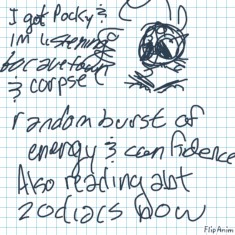 I got Pocky?
im listening
to cavetown
? corpse
random burst of
energy ? confidence
Also reading abt
zodiacs now
FlipAnim